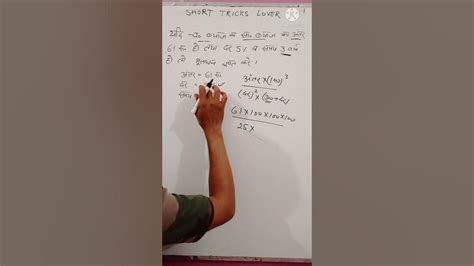 SHORT TRICKS LOVER
यदि च० ब्याज व सा० ब्याज का अंतर
61 रू हो तथा दर 5% व समय 3 वर्ष
हो तो मूलधन ज्ञात करे।
अंतर = 61 रू
दर =
समय
अंतर × (100)³
(दर)² × (300 + दर)
61×100×100×100
25×